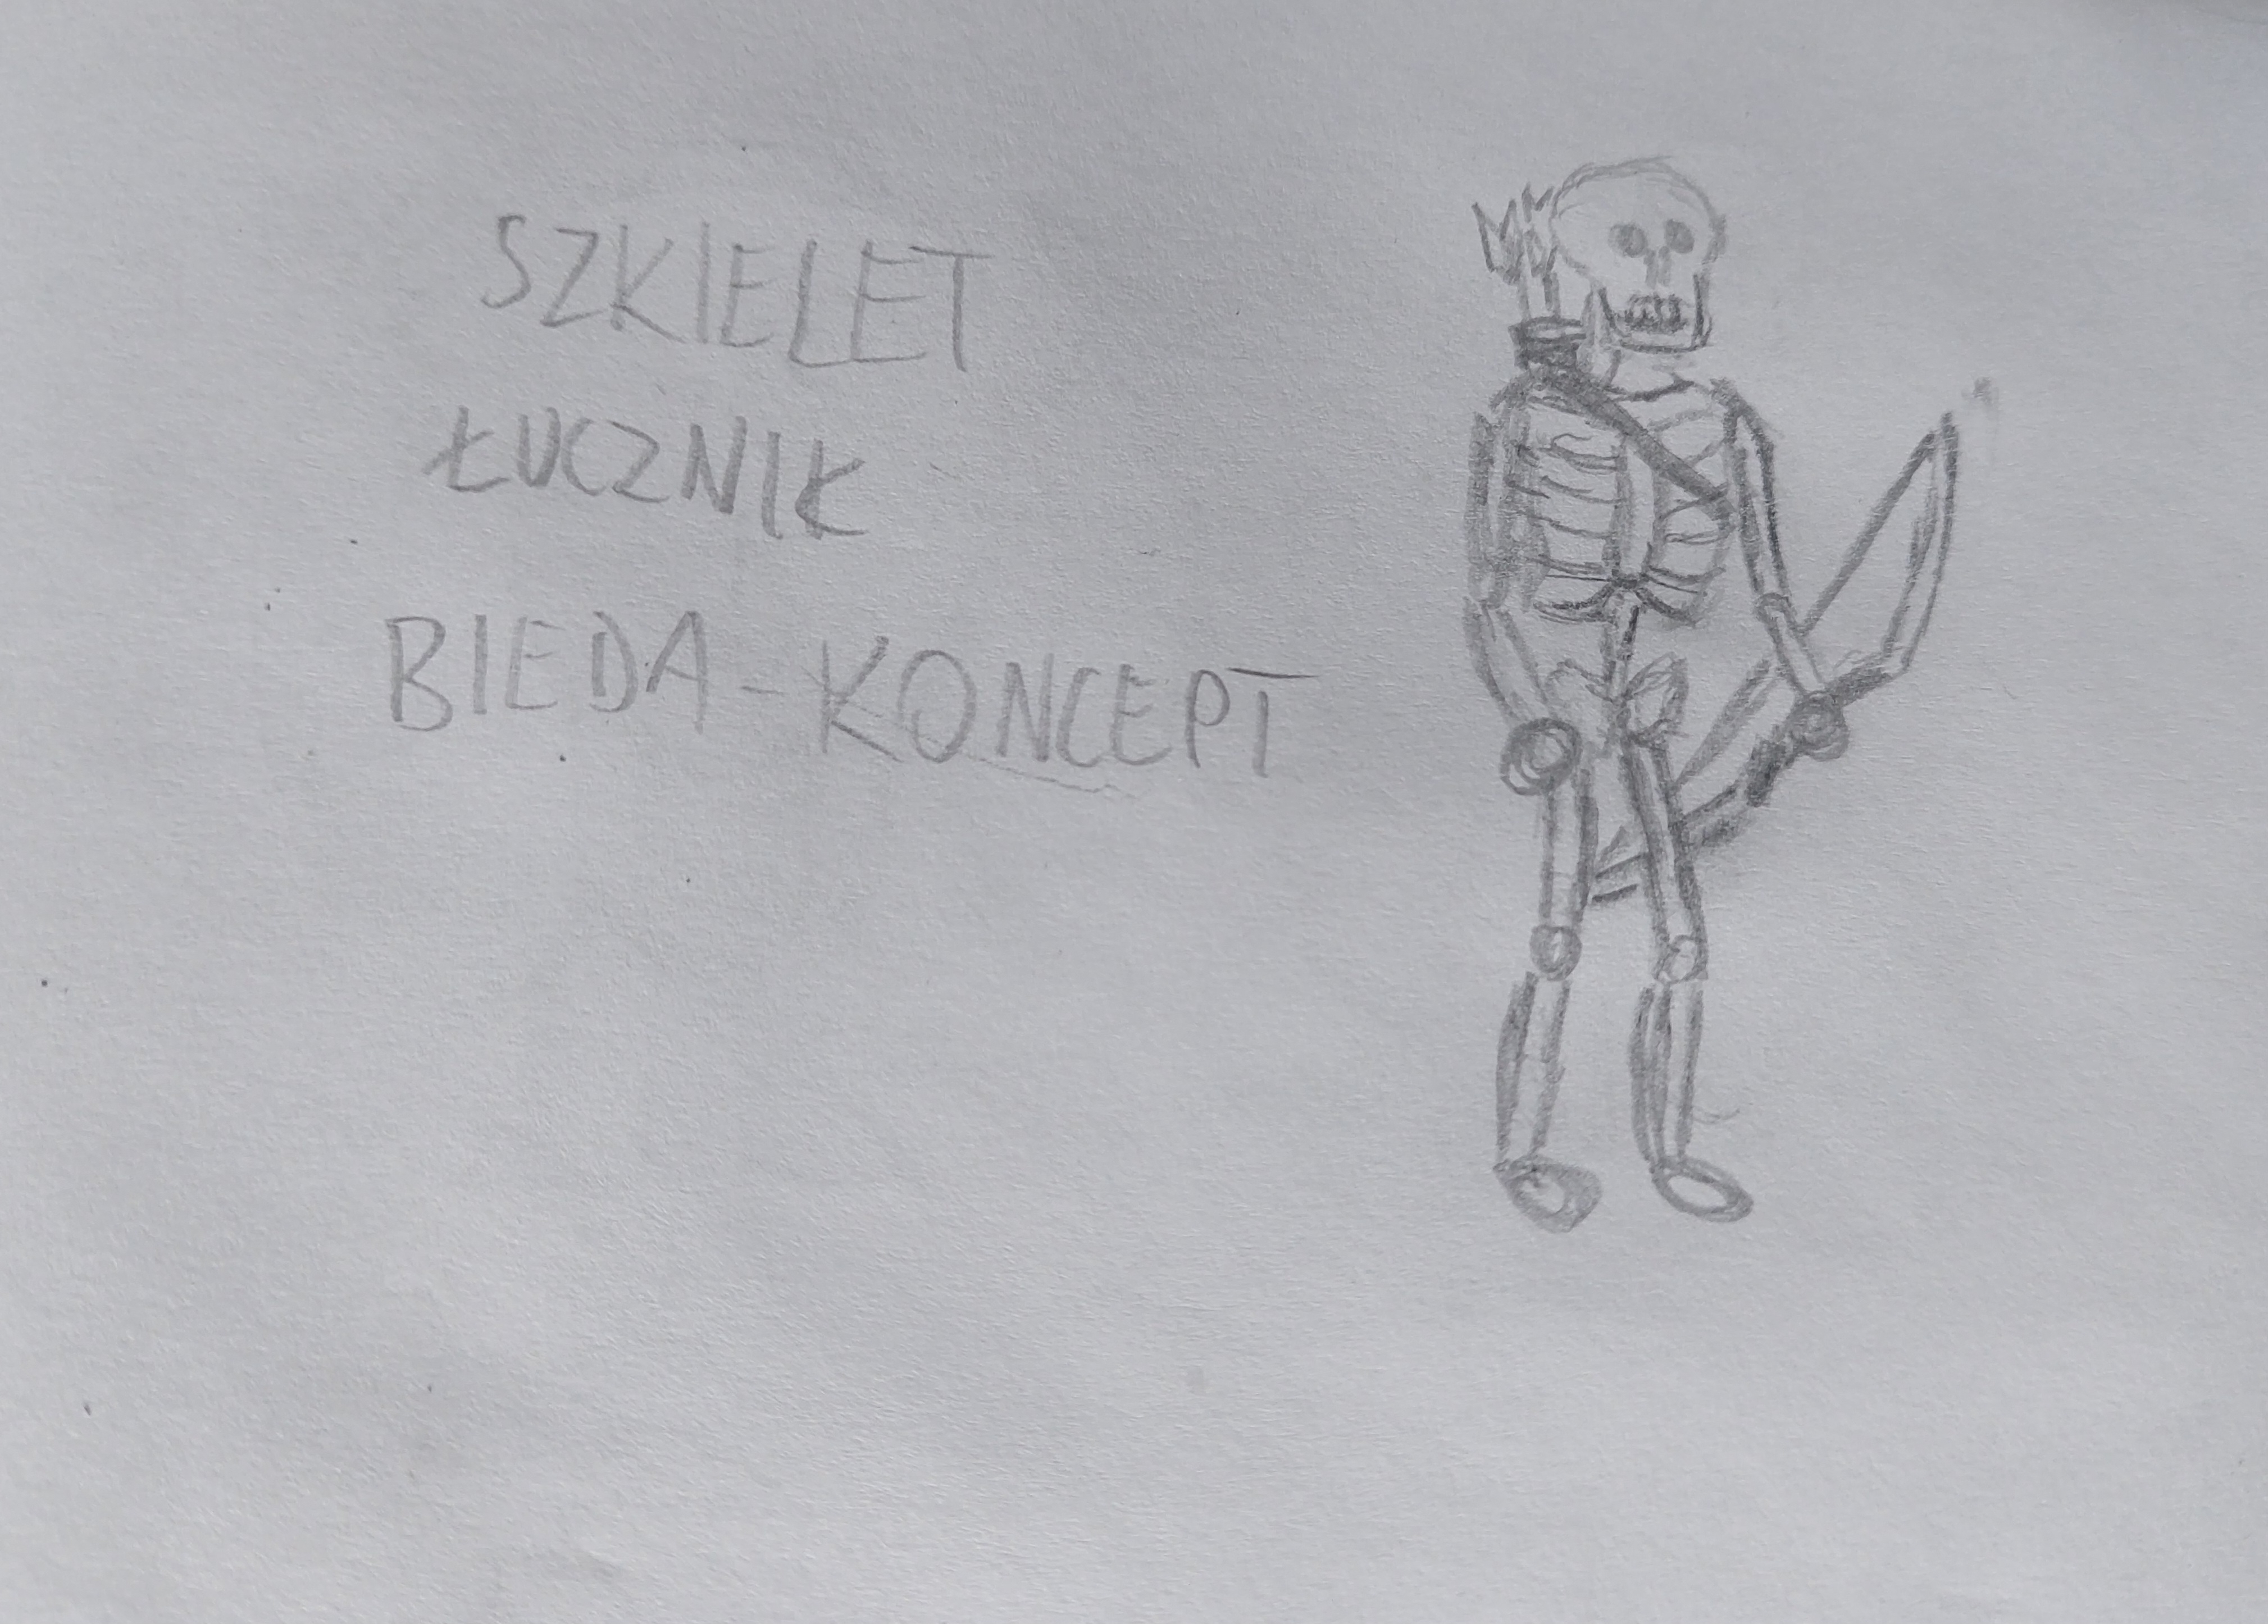 SZKIELET
ŁUCZNIK
BIEDA-KONCEPT